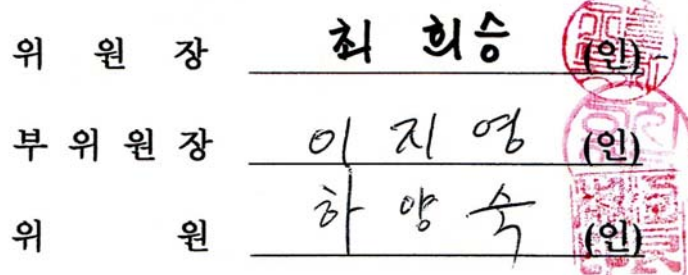 위 원 장 최 희승 (인)
부 위 원 장 이 지 영 (인)
위 원 하 양 숙 (인)